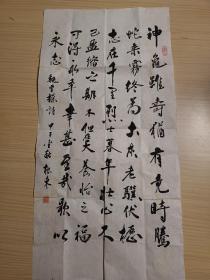 神龜雖壽猶有竟時騰
蛇乘霧終為土灰老驥伏櫪
志在千里烈士暮年壯心不
已盈縮之期不但在天養怡之福
可得永年幸甚至哉歌以
永志 魏曹操詩 甲